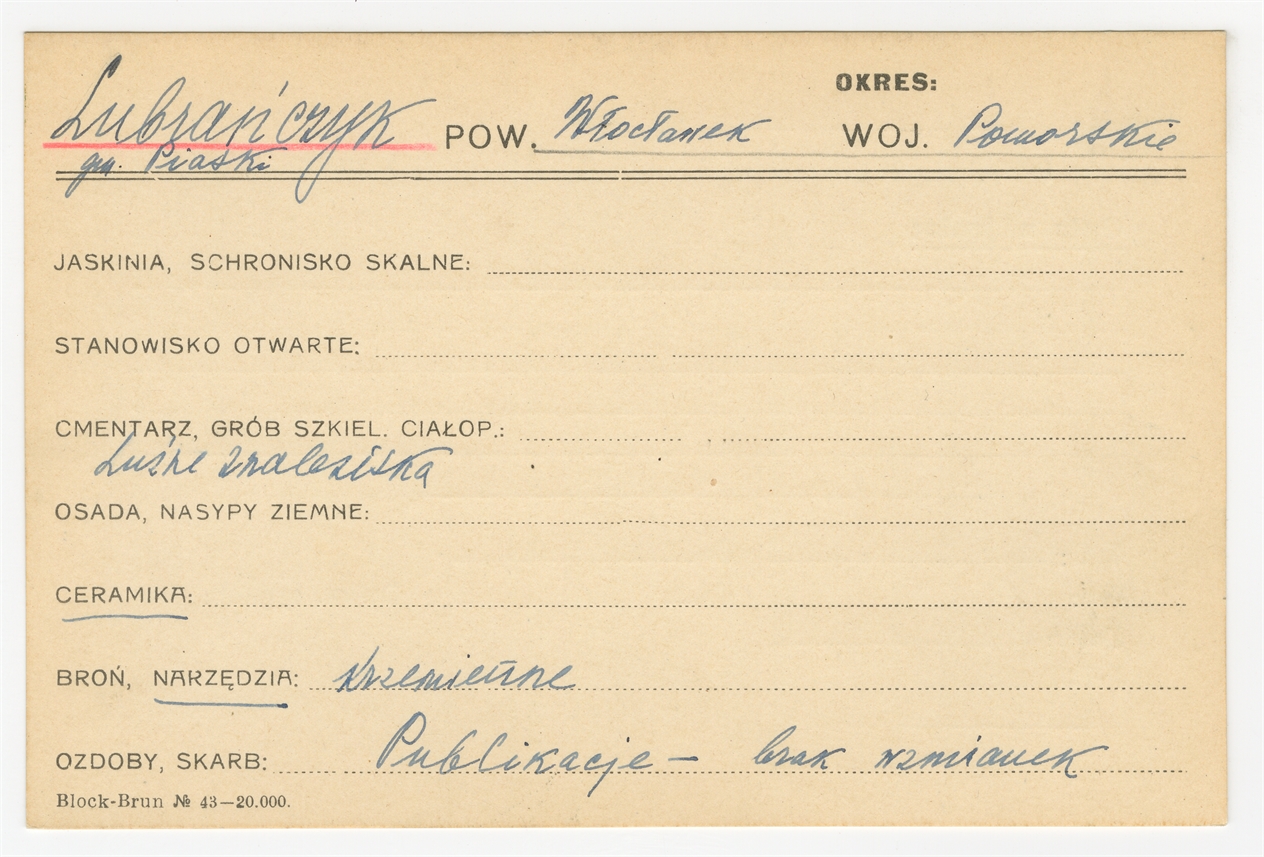 OKRES:
Lubrańczyk POW. Włocławek WOJ. Pomorskie
gm. Piaski
JASKINIA, SCHRONISKO SKALNE:
STANOWISKO OTWARTE:
CMENTARZ, GRÓB SZKIEL. CIAŁOP.:
Luźne znaleziska
OSADA, NASYPY ZIEMNE:
CERAMIKA:
BROŃ, NARZĘDZIA: krzemienne
OZDOBY, SKARB: Publikacje – brak wzmianek
Block-Brun № 43—20.000.